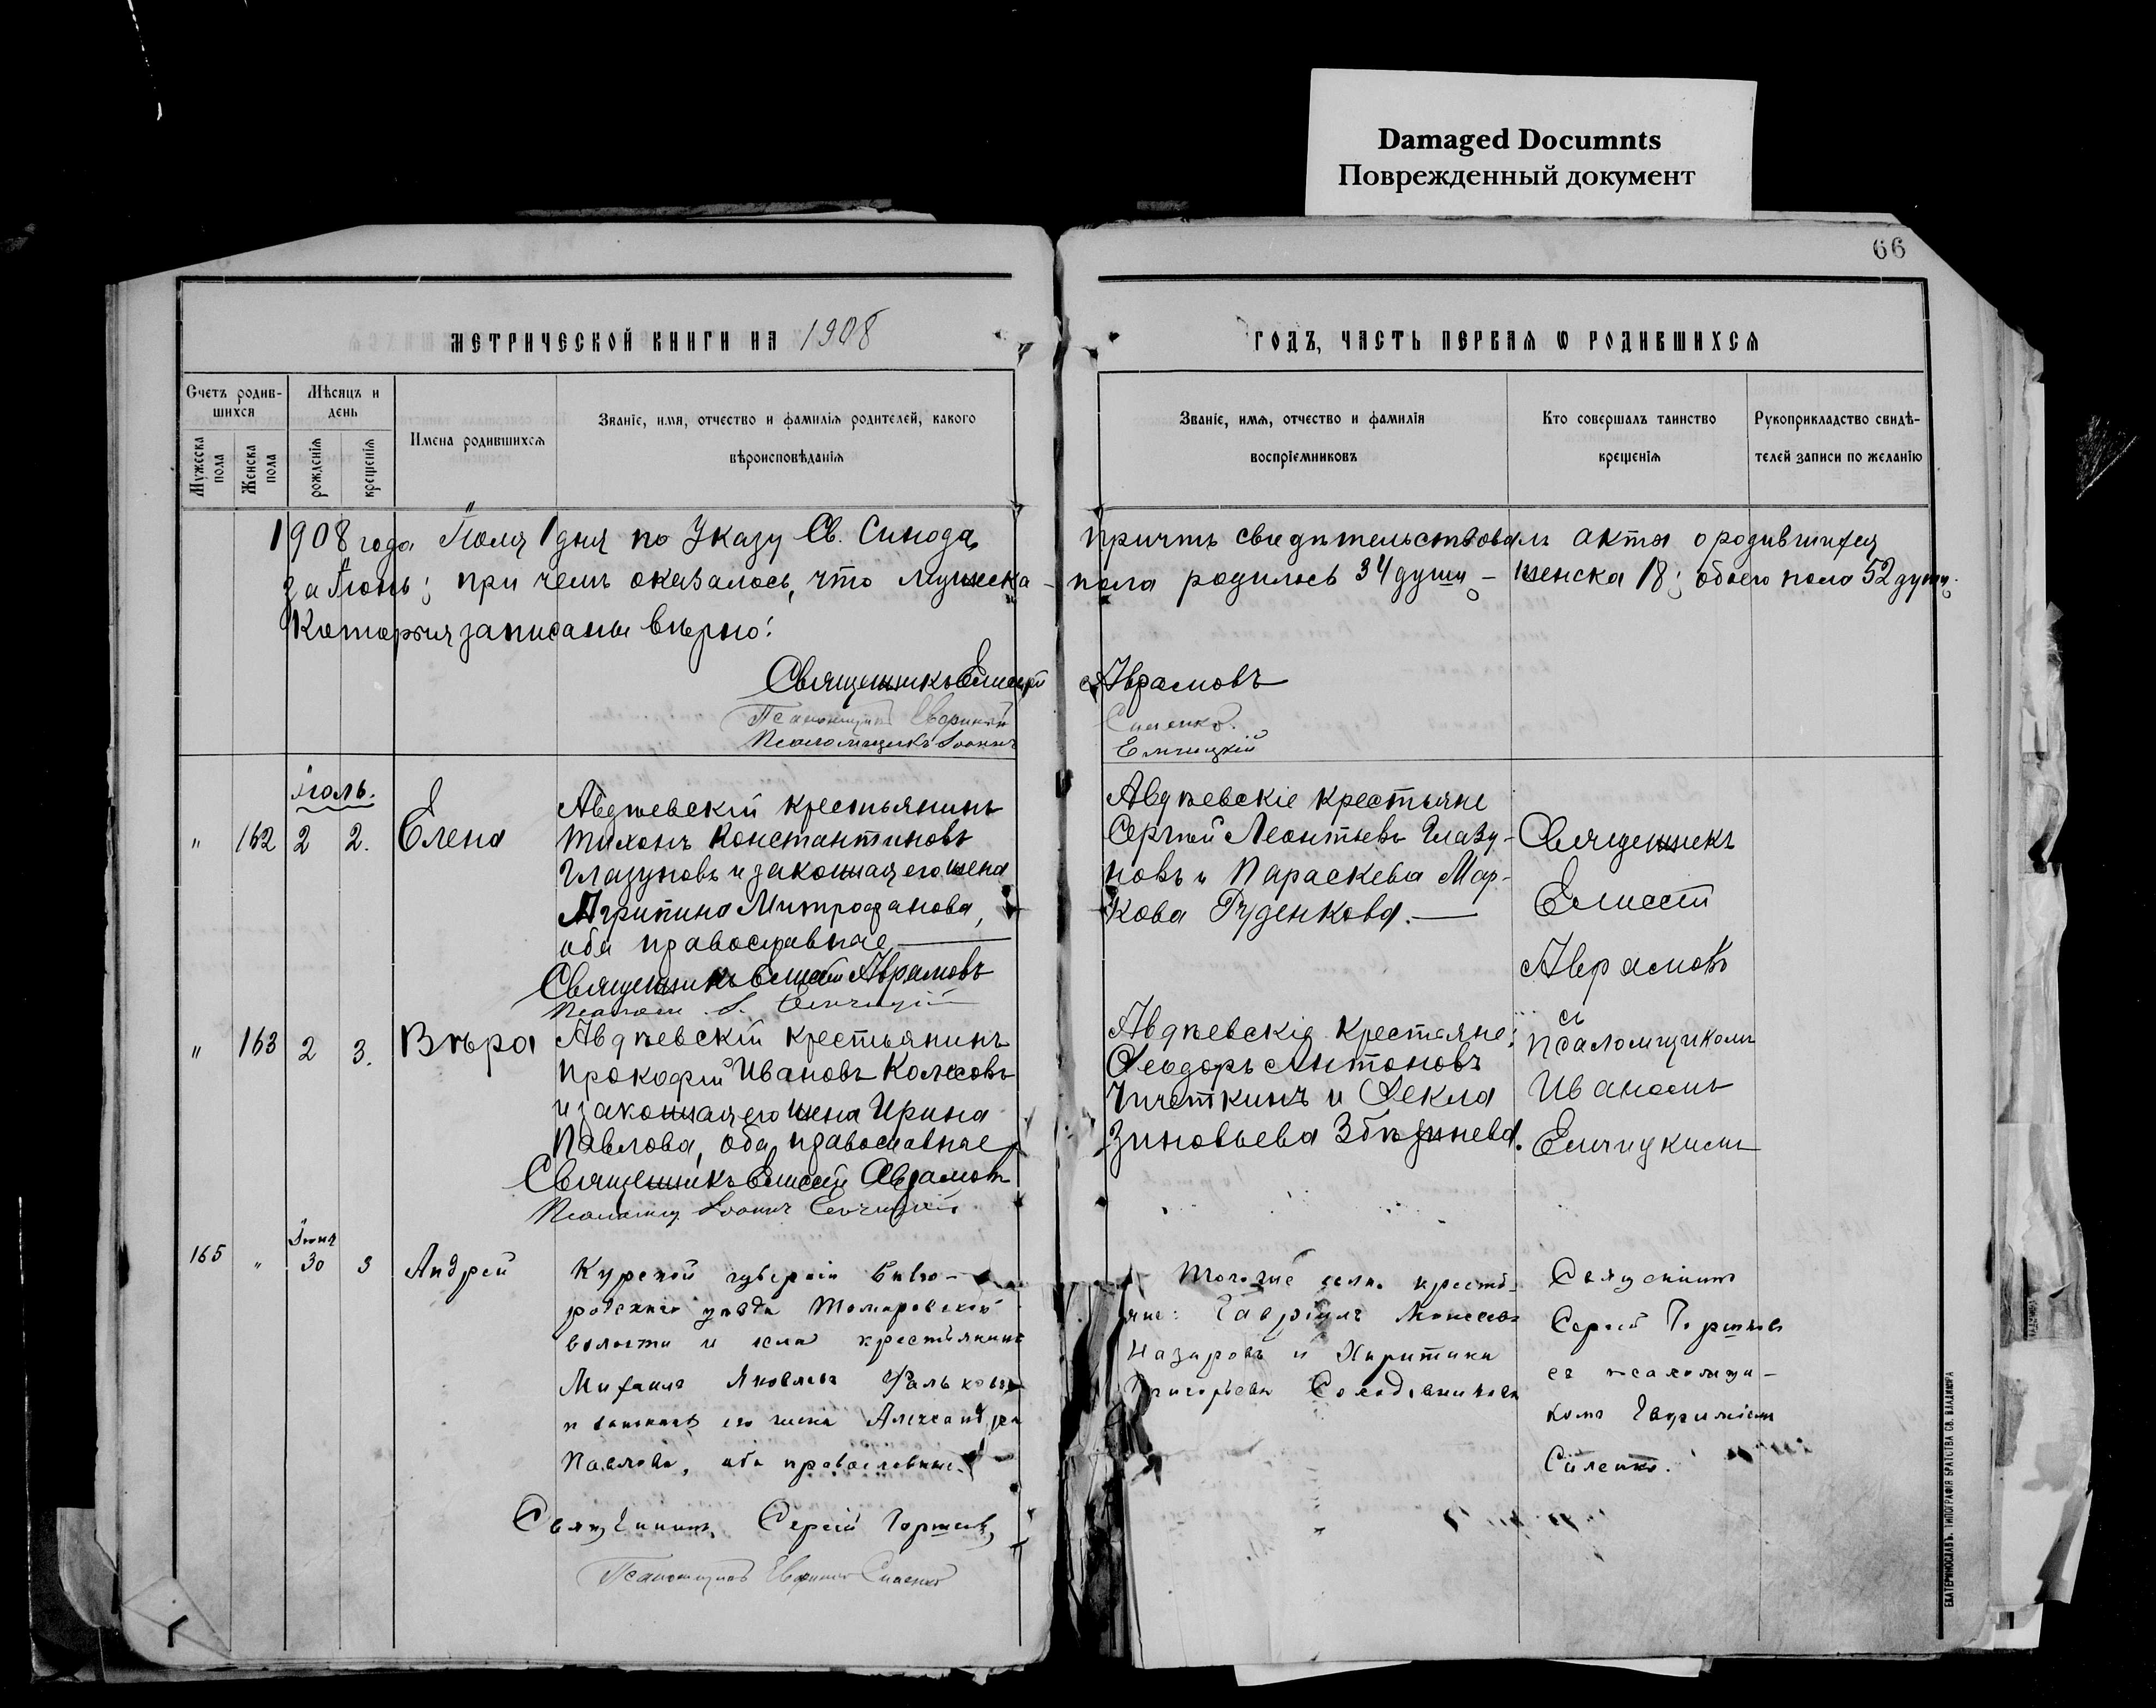 Damaged Documnts
Поврежденный документ
66
МЕТРИЧЕСКОЙ КНИГИ НА 1908
ГОДЪ, ЧАСТЬ ПЕРВАЯ Ѡ РОДИВШИХСЯ
Счетъ родив-
шихся
Мѣсяцъ и
день
Мужеска
пола
Женска
пола
рожденія
крещенія
Имена родившихся
Званіе, имя, отчество и фамилія родителей, какого
вѣроисповѣданія
Званіе, имя, отчество и фамилія
воспріемниковъ
Кто совершалъ таинство
крещенія
Рукоприкладство свидѣ-
телей записи по желанію
1908 года Іюля 1 дня по Указу Св. Синода, причтъ свидѣтельствовалъ акты о родившихся
за Іюнь; при чемъ оказалось, что мужеска - пола родилось 34 душу - женска 18; обоего пола 52 душу.
Которыя записаны вѣрно:
Священникъ Елисей Аврамовъ
Псаломщикъ Евфимій Силенко.
Псаломщикъ Іоаннъ Елчицкій
Іюль.
" 162 2 2. Елена
Авдѣевскій крестьянинъ
Тихонъ Константиновъ
Глазуновъ и законная его жена
Агрипина Митрофанова,
оба православные
Священникъ Елисей Аврамовъ
Авдѣевскіе крестьяне
Сергѣй Леонтьевъ Глазу-
новъ и Параскева Мар-
кова Руденкова.
Священникъ
Елисей
Аврамовъ
съ
псаломщикомъ
Иваномъ
Елчицкимъ
" 163 2 3. Вѣра
Авдѣевскій крестьянинъ
Прокофій Ивановъ Колесовъ
и законная его жена Ирина
Павлова, оба православные
Священникъ Елисей Аврамовъ
Псаломщ. Іоаннъ Елчицкій
Авдѣевскіе крестьяне:
Ѳеодоръ Антоновъ
и Ѳекла
Зиновьева
Іюня
165 " 30 3 Андрей
Курской губерніи Бѣло-
родскаго уѣзда Томаровской
волости и села крестьянинъ
Михаилъ Яковлевъ Фальковъ
и законная его жена Александра
Павлова, оба православные.
Священникъ Сергій
Псаломщикъ Евфимій Силенко
Того же села крестья-
не: Гавріилъ Моисеевъ
Назаровъ и Харитина
Григорьева Солодовникова
Священникъ
Сергій
съ псаломщи-
комъ Евфиміемъ
Силенко.
ЕКАТЕРИНОСЛАВЪ. ТИПОГРАФІЯ БРАТСТВА СВ. ВЛАДИМІРА